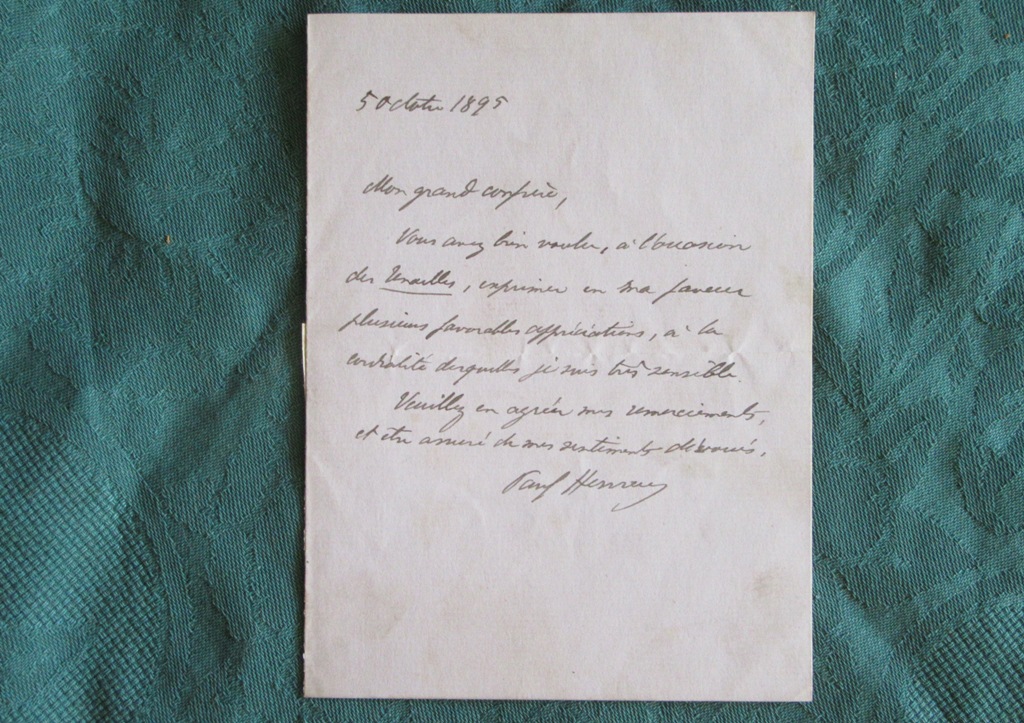 5 Octobre 1895
Mon grand confrère,
Vous avez bien voulu, à l'occasion
des Tenailles, exprimer en ma faveur
plusieurs favorables appréciations, à la
cordialité desquelles je suis très sensible.
Veuillez en agréer mes remerciements,
et être assuré de mes sentiments dévoués.
Paul Hervieu